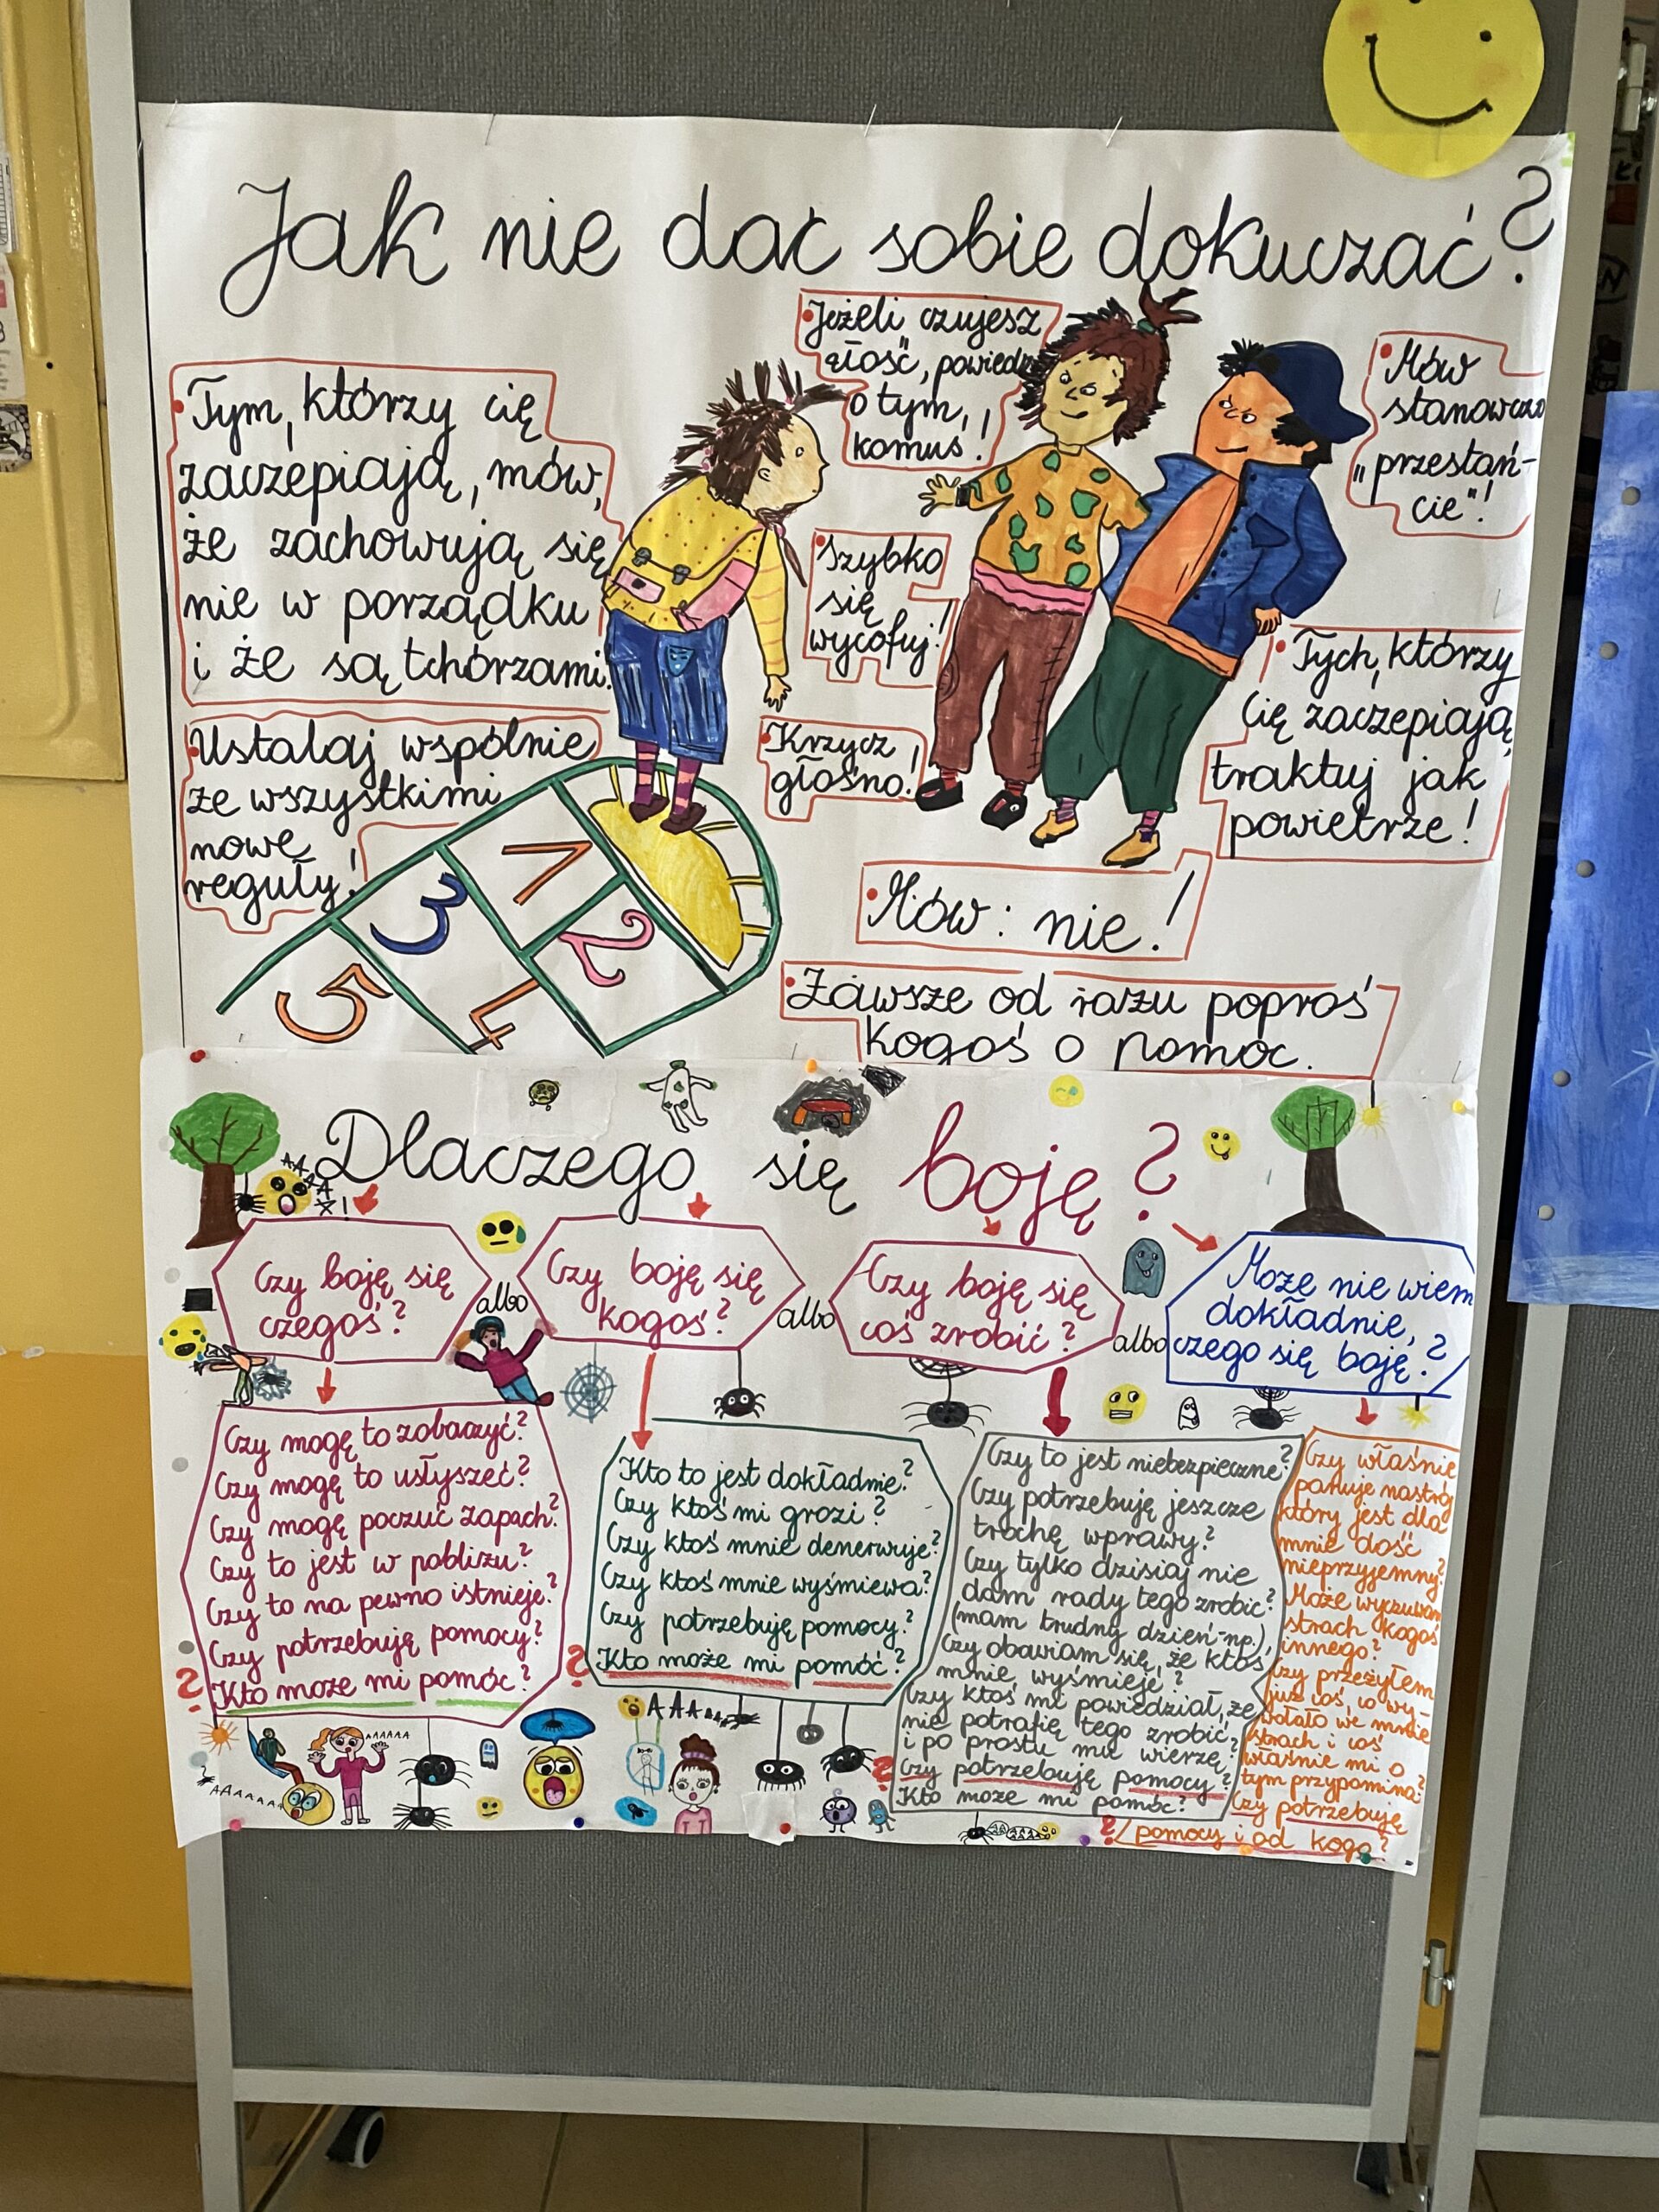 Jak nie dać sobie dokuczać?
• Tym, którzy cię
zaczepiają, mów,
że zachowują się
nie w porządku
i że są tchórzami.
• Ustalaj wspólnie
ze wszystkimi
nowe
reguły!
• Jeżeli czujesz
złość, powiedz
o tym,
komuś!
• Szybko
się
wycofuj!
• Krzycz
głośno!
• Mów
stanowczo
„przestań-
cie"!
• Tych, którzy
Cię zaczepiają,
traktuj jak
powietrze!
• Mów: nie!
• Zawsze od razu poproś
kogoś o pomoc.
1
2
3
4
5
Dlaczego się boję?
Czy boję się
czegoś?
albo
Czy boję się
kogoś?
albo
Czy boję się
coś zrobić?
albo
Może nie wiem
dokładnie,
czego się boję?
Czy mogę to zobaczyć?
Czy mogę to usłyszeć?
Czy mogę poczuć zapach?
Czy to jest w pobliżu?
Czy to na pewno istnieje?
Czy potrzebuję pomocy?
? Kto może mi pomóc?
Kto to jest dokładnie?
Czy ktoś mi grozi?
Czy ktoś mnie denerwuje?
Czy ktoś mnie wyśmiewa?
Czy potrzebuję pomocy?
? Kto może mi pomóc?
Czy to jest niebezpieczne?
Czy potrzebuję jeszcze
trochę wprawy?
Czy tylko dzisiaj nie
dam rady tego zrobić?
(mam trudny dzień-np.),
Czy obawiam się, że ktoś
mnie wyśmieje?
Czy ktoś mi powiedział, że
nie potrafię tego zrobić
i po prostu mu wierzę?
? Czy potrzebuję pomocy?
Kto może mi pomóc?
Czy właśnie
panuje nastrój
który jest dla
mnie dość
nieprzyjemny?
Może wyczuwam
strach kogoś
innego?
Czy przeżyłem
już coś, co wy-
wołało we mnie
strach i coś
właśnie mi o
tym przypomina?
Czy potrzebuję
? pomocy i od kogo?
AAAAAA
AAAAAA
AAAAA